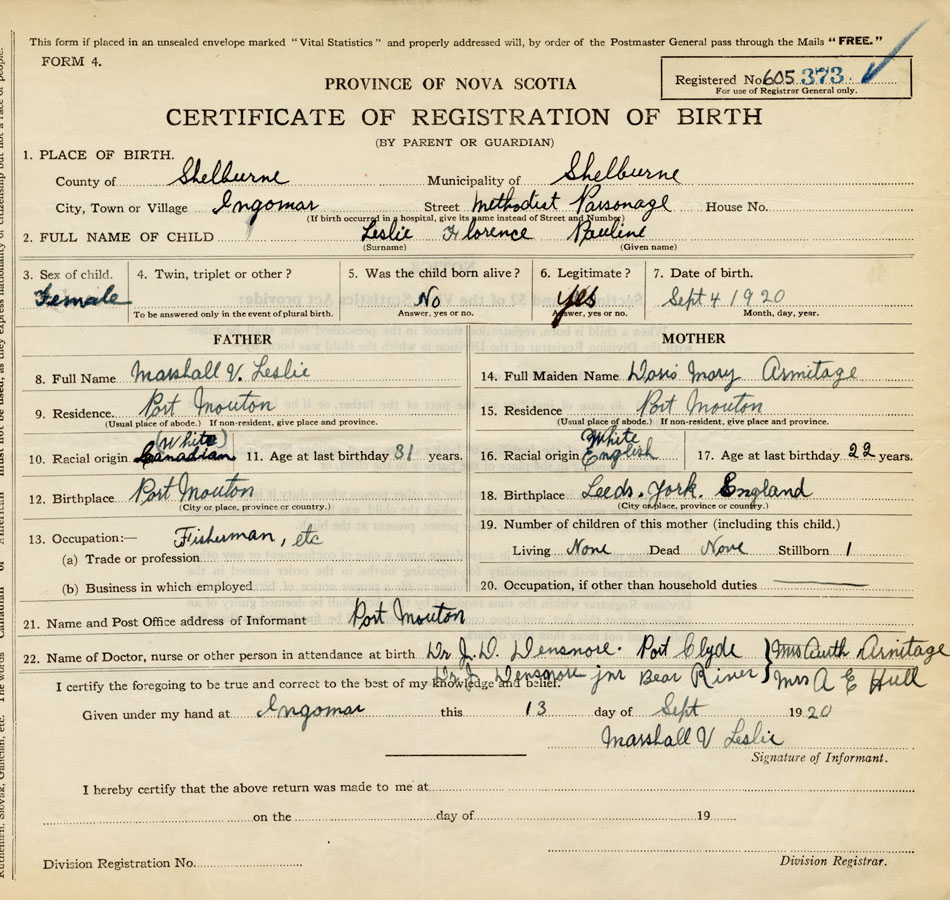 This form if placed in an unsealed envelope marked "Vital Statistics" and properly addressed will, by order of the Postmaster General pass through the Mails "FREE."
FORM 4.
Registered No. 605 373
For use of Registrar General only.
PROVINCE OF NOVA SCOTIA
CERTIFICATE OF REGISTRATION OF BIRTH
(BY PARENT OR GUARDIAN)
1. PLACE OF BIRTH.
County of Shelburne Municipality of Shelburne
City, Town or Village Ingomar Street Methodist Parsonage House No.
(If birth occurred in a hospital, give its name instead of Street and Number)
2. FULL NAME OF CHILD Leslie Florence Pauline
(Surname) (Given name)
3. Sex of child. 4. Twin, triplet or other? 5. Was the child born alive? 6. Legitimate? 7. Date of birth.
Female No Yes Sept 4 1920
To be answered only in the event of plural birth. Answer, yes or no. Answer, yes or no. Month, day, year.
FATHER MOTHER
8. Full Name Marshall V. Leslie 14. Full Maiden Name Doris Mary Armitage
9. Residence. Port Mouton 15. Residence Port Mouton
(Usual place of abode.) If non-resident, give place and province. (Usual place of abode.) If non-resident, give place and province.
(White) White
10. Racial origin Canadian 11. Age at last birthday 31 years. 16. Racial origin English 17. Age at last birthday 22 years.
12. Birthplace Port Mouton 18. Birthplace Leeds. York. England
(City or place, province or country.) (City or place, province or country.)
13. Occupation:— Fisherman, etc 19. Number of children of this mother (including this child.)
(a) Trade or profession Living None Dead None Stillborn 1
(b) Business in which employed 20. Occupation, if other than household duties
21. Name and Post Office address of Informant Port Mouton
22. Name of Doctor, nurse or other person in attendance at birth Dr J. D. Densmore. Port Clyde } Mrs Ruth Armitage
Densmore jnr Bear River Mrs A E Hull
I certify the foregoing to be true and correct to the best of my knowledge and belief.
Given under my hand at Ingomar this 13 day of Sept 1920
Marshall V Leslie
Signature of Informant.
I hereby certify that the above return was made to me at
on the day of 19
Division Registration No. Division Registrar.